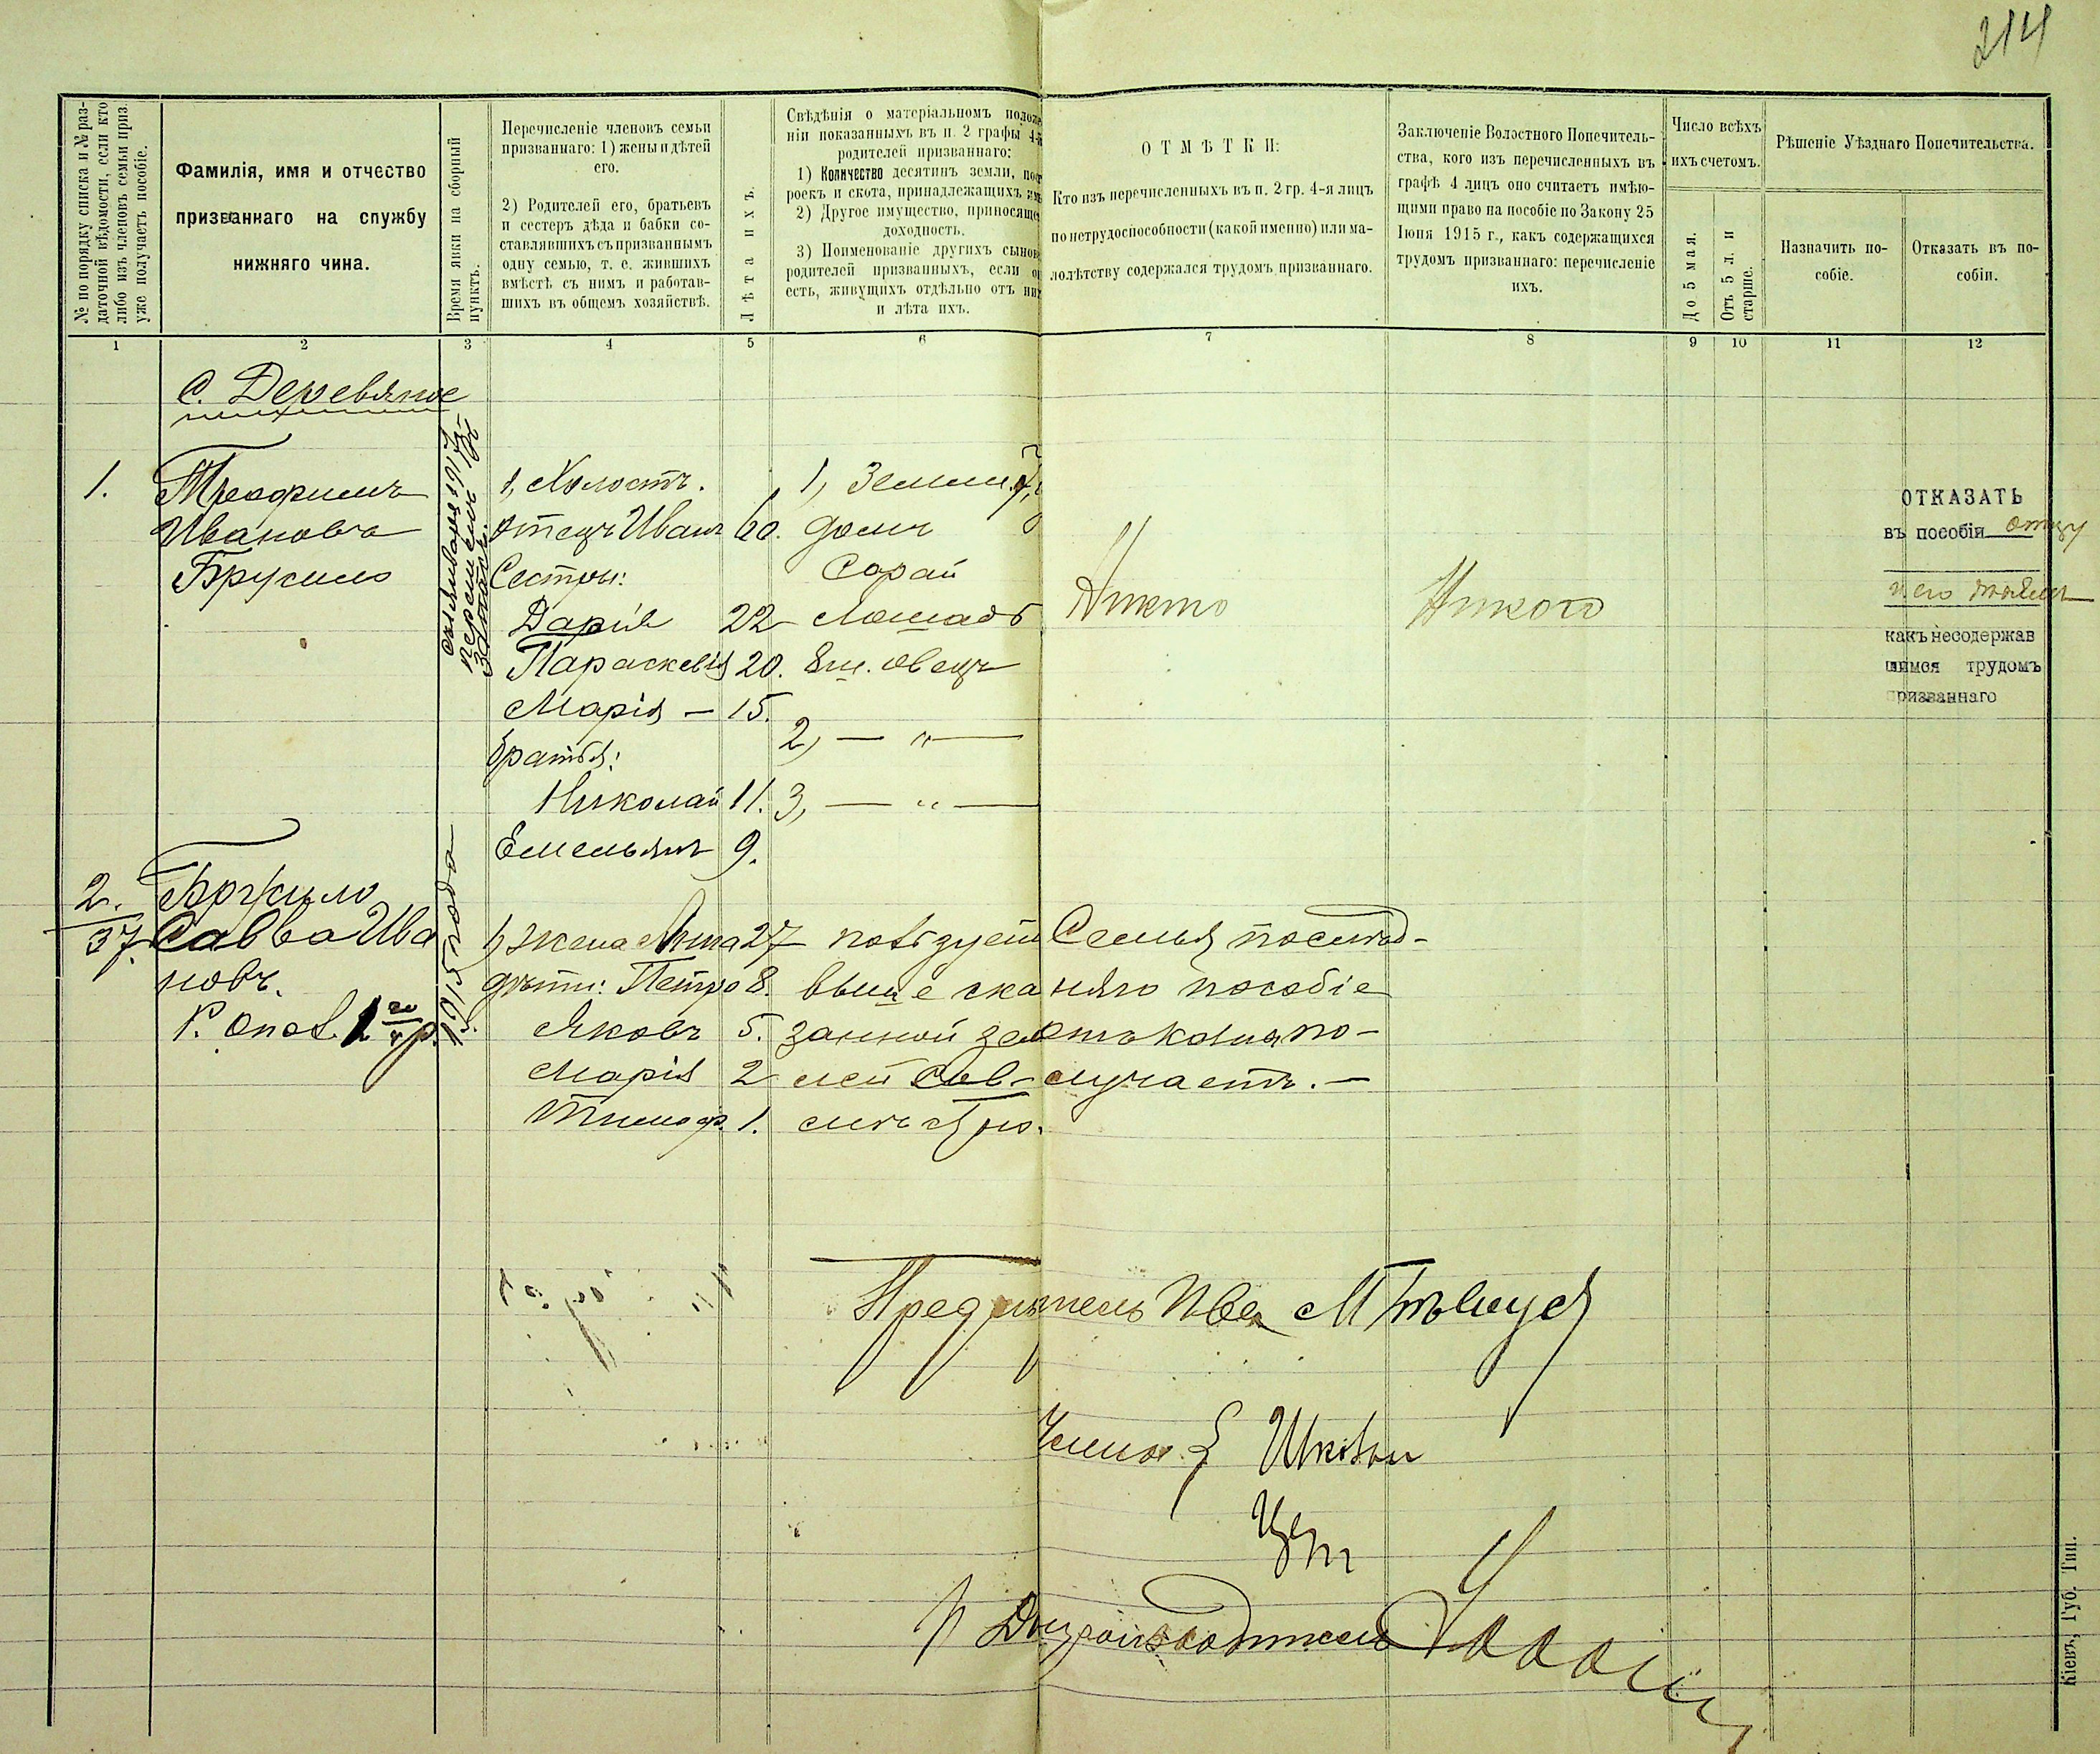 214
№ по порядку списка и № раз-
даточной вѣдомости, если кто
либо изъ членовъ семьи приз
уже получаетъ пособіе.
Фамилія, имя и отчество
призваннаго на службу
нижняго чина.
Время явки на сборный
пунктъ.
Перечисленіе членовъ семьи
призваннаго: 1) жены и дѣтей
его.
2) Родителей его, братьевъ
и сестеръ дѣда и бабки со-
ставлявшихъ съ призваннымъ
одну семью, т. е. жившихъ
вмѣстѣ съ нимъ и работав-
шихъ въ общемъ хозяйствѣ.
Лѣта ихъ.
Свѣдѣнія о матеріальномъ положе
ніи показанныхъ въ п. 2 графы 4-я
родителей призваннаго:
1) Количество десятинъ земли, пост
роекъ и скота, принадлежащихъ имъ
2) Другое имущество, приносящее
доходность.
3) Поименованіе другихъ сынов
родителей призванныхъ, если он
есть, живущихъ отдѣльно отъ них
и лѣта ихъ.
ОТМѢТКИ:
Кто изъ перечисленныхъ въ п. 2 гр. 4-я лицъ
по нетрудоспособности (какой именно) или ма-
лолѣтству содержался трудомъ призваннаго.
Заключеніе Волостного Попечитель-
ства, кого изъ перечисленныхъ въ
графѣ 4 лицъ оно считаетъ имѣю-
щими право на пособіе по Закону 25
Іюня 1915 г., какъ содержащихся
трудомъ призваннаго: перечисленіе
ихъ.
Число всѣхъ
ихъ счетомъ.
До 5 мая.
Отъ 5 л. и
старше.
Рѣшеніе Уѣзднаго Попечительства.
Назначить по-
собіе.
Отказать въ по-
собіи.
1 2 3 4 5 6 7 8 9 10 11 12
С. Деревяное
1.
Трофимъ
Ивановъ
Брусило
1917
1, Холостъ.
отецъ Иванъ 60.
Сестры:
Дарія 22
Параскевія 20.
Марія — 15.
братья:
Николай 11.
Емельянъ 9.
1, Земли
домъ
Сарай
Лошадь
8 ш. овецъ
2, — " —
3, — " —
Никто
Никого
ОТКАЗАТЬ
въ пособіи отцу
и его
какъ несодержав
шимся трудомъ
призваннаго
2.
37.
Брусило
Савва Ива
новъ.
Р. опол. 1 го р.
1915 года
1, жена Анна 27
дѣти: Петро 8.
Яковъ 5.
Марія 2
Тимоф. 1.
выше ска
занной зе
Семья послѣд-
няго пособіе
по-
лучаетъ. —
Кіевъ, Губ. Тип.